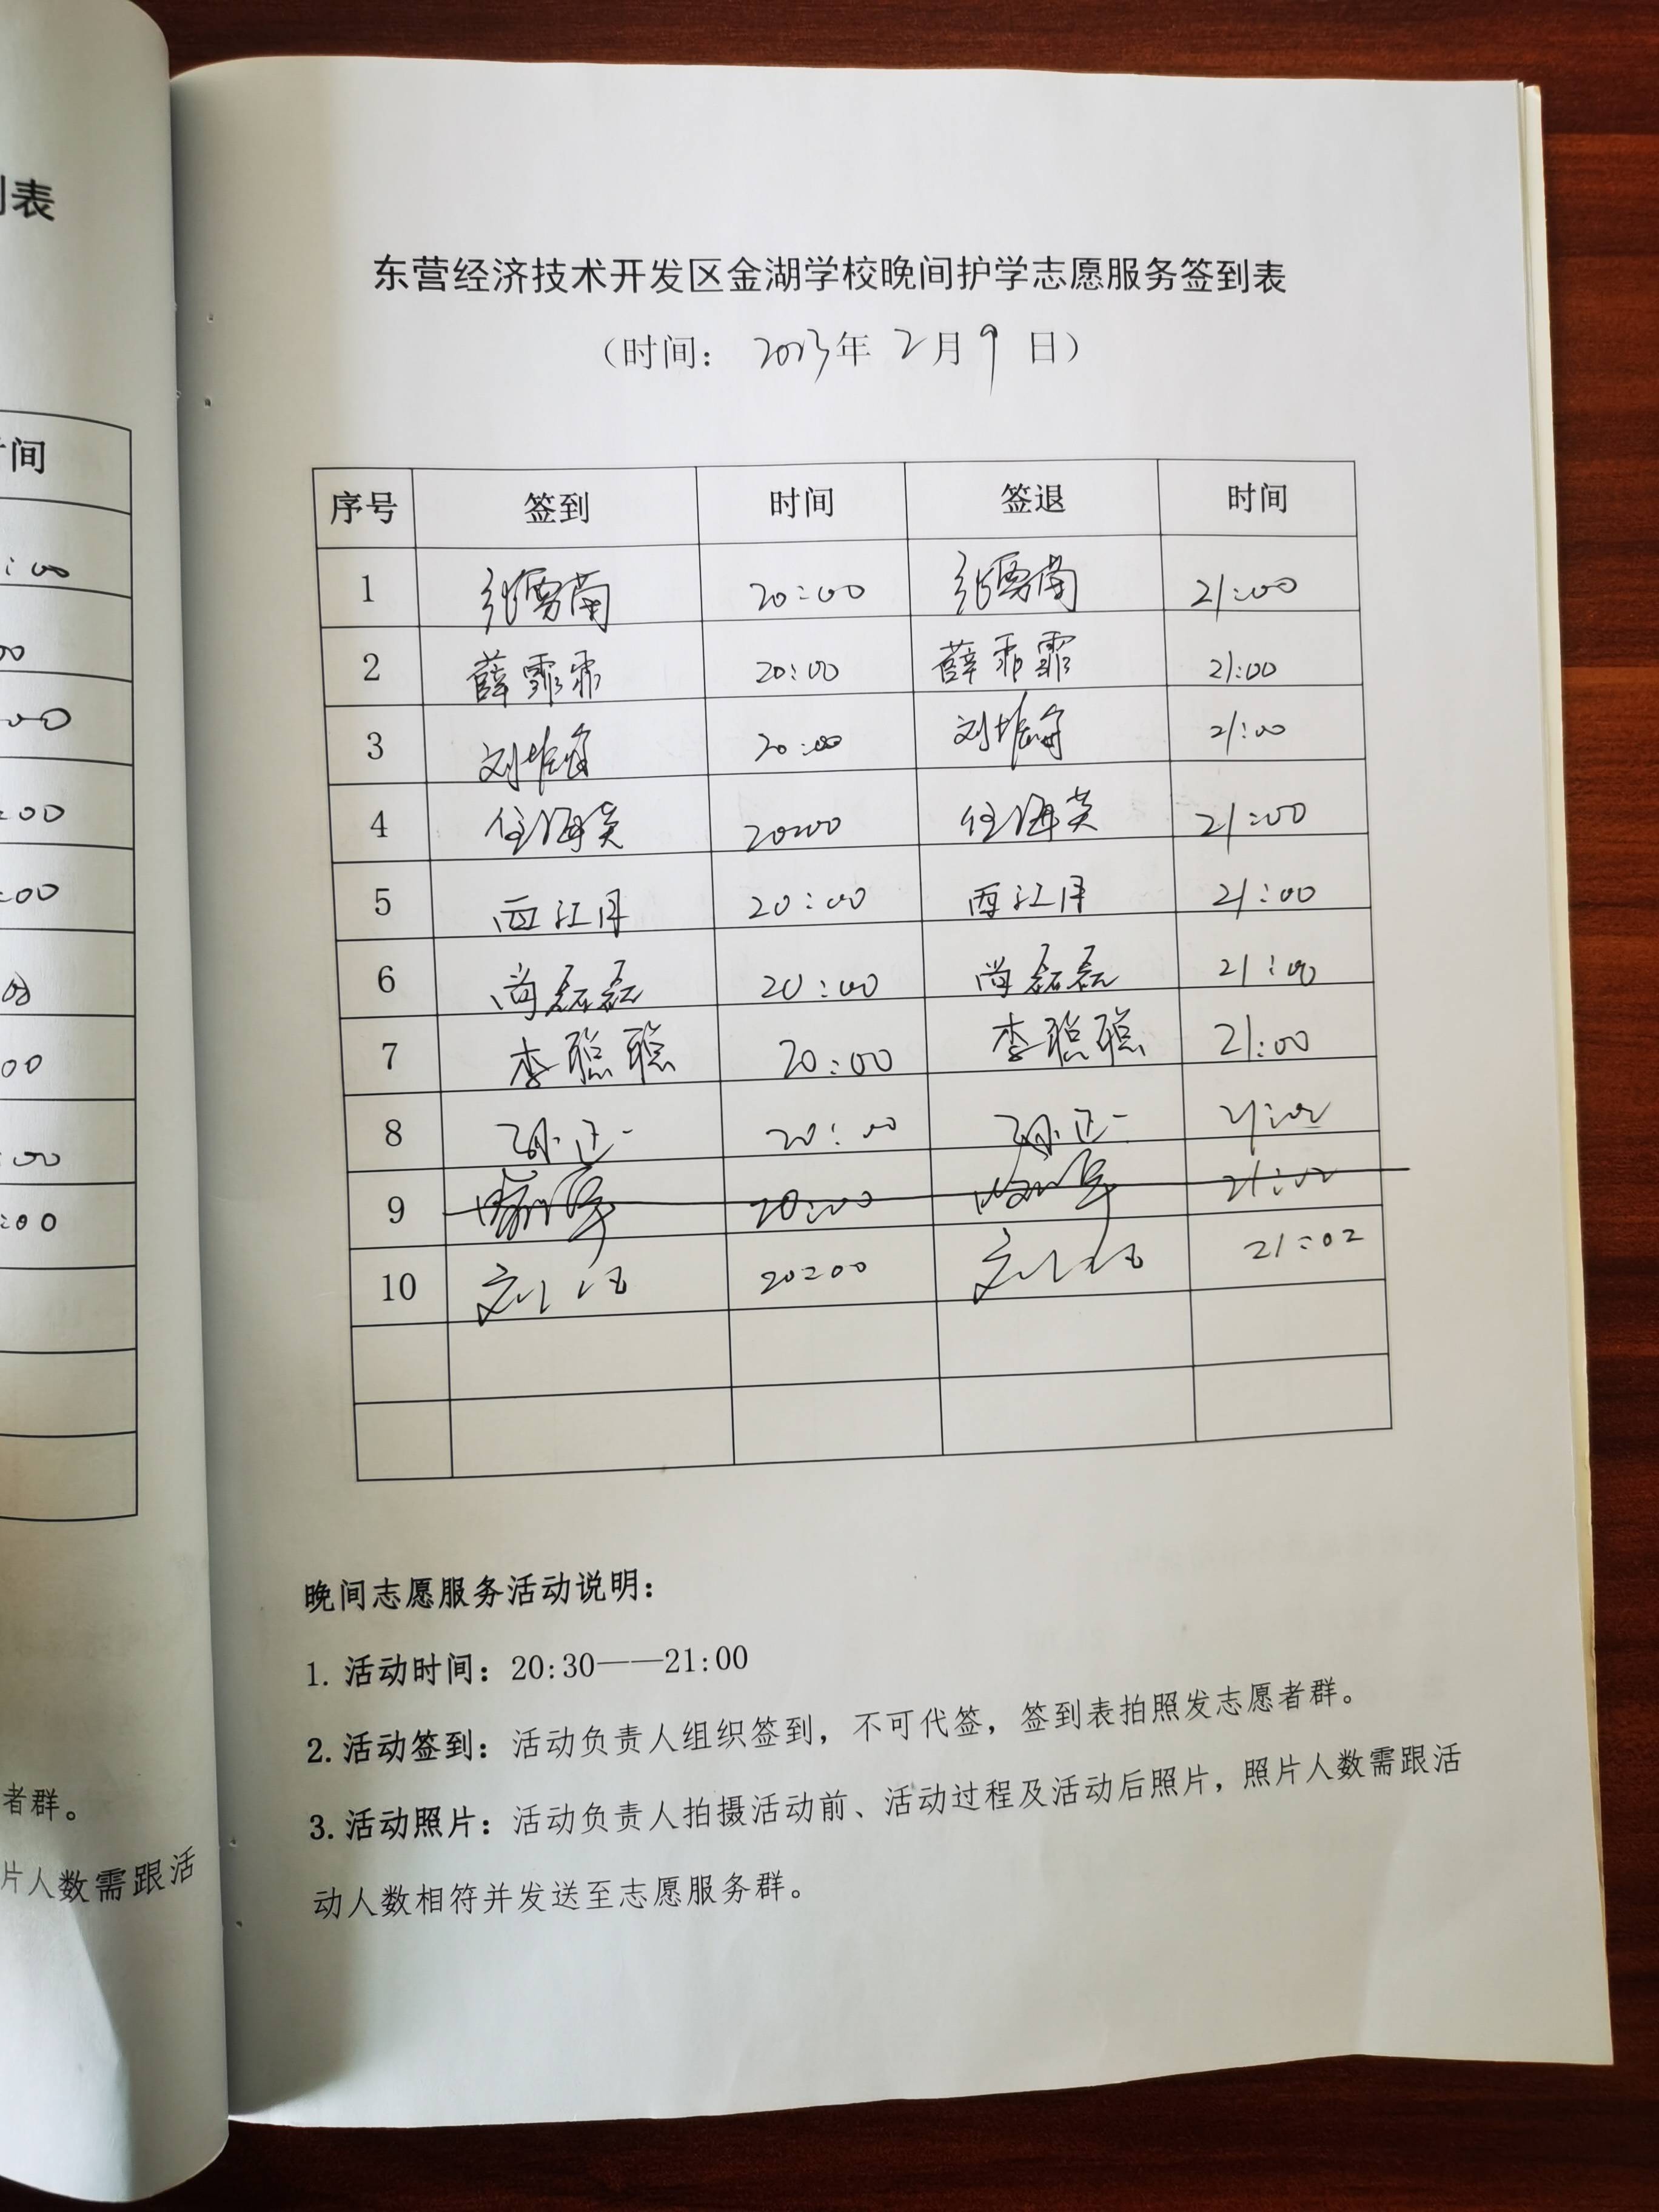 东营经济技术开发区金湖学校晚间护学志愿服务签到表
（时间： 2023年 2月 9 日）
序号 签到 时间 签退 时间
1 张雪菊 20:00 张雪菊 21:00
2 薛霏霏 20:00 薛霏霏 21:00
3 刘 20:00 刘 21:00
4 任海英 20:00 任海英 21:00
5 西江月 20:00 西江月 21:00
6 尚磊磊 20:00 尚磊磊 21:00
7 李聪聪 20:00 李聪聪 21:00
8 孙正一 20:00 孙正一 21:00
9 20:00 21:00
10 20:00 21:02
晚间志愿服务活动说明：
1. 活动时间：20:30——21:00
2. 活动签到：活动负责人组织签到，不可代签，签到表拍照发志愿者群。
3. 活动照片：活动负责人拍摄活动前、活动过程及活动后照片，照片人数需跟活
动人数相符并发送至志愿服务群。
表
间
:00
00
:00
:00
:00
00
00
:00
:00
者群。
片人数需跟活